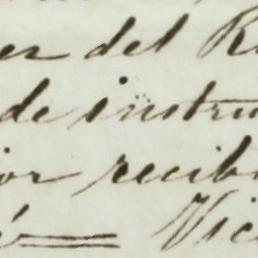 er del R
de instru
or recib
Vic